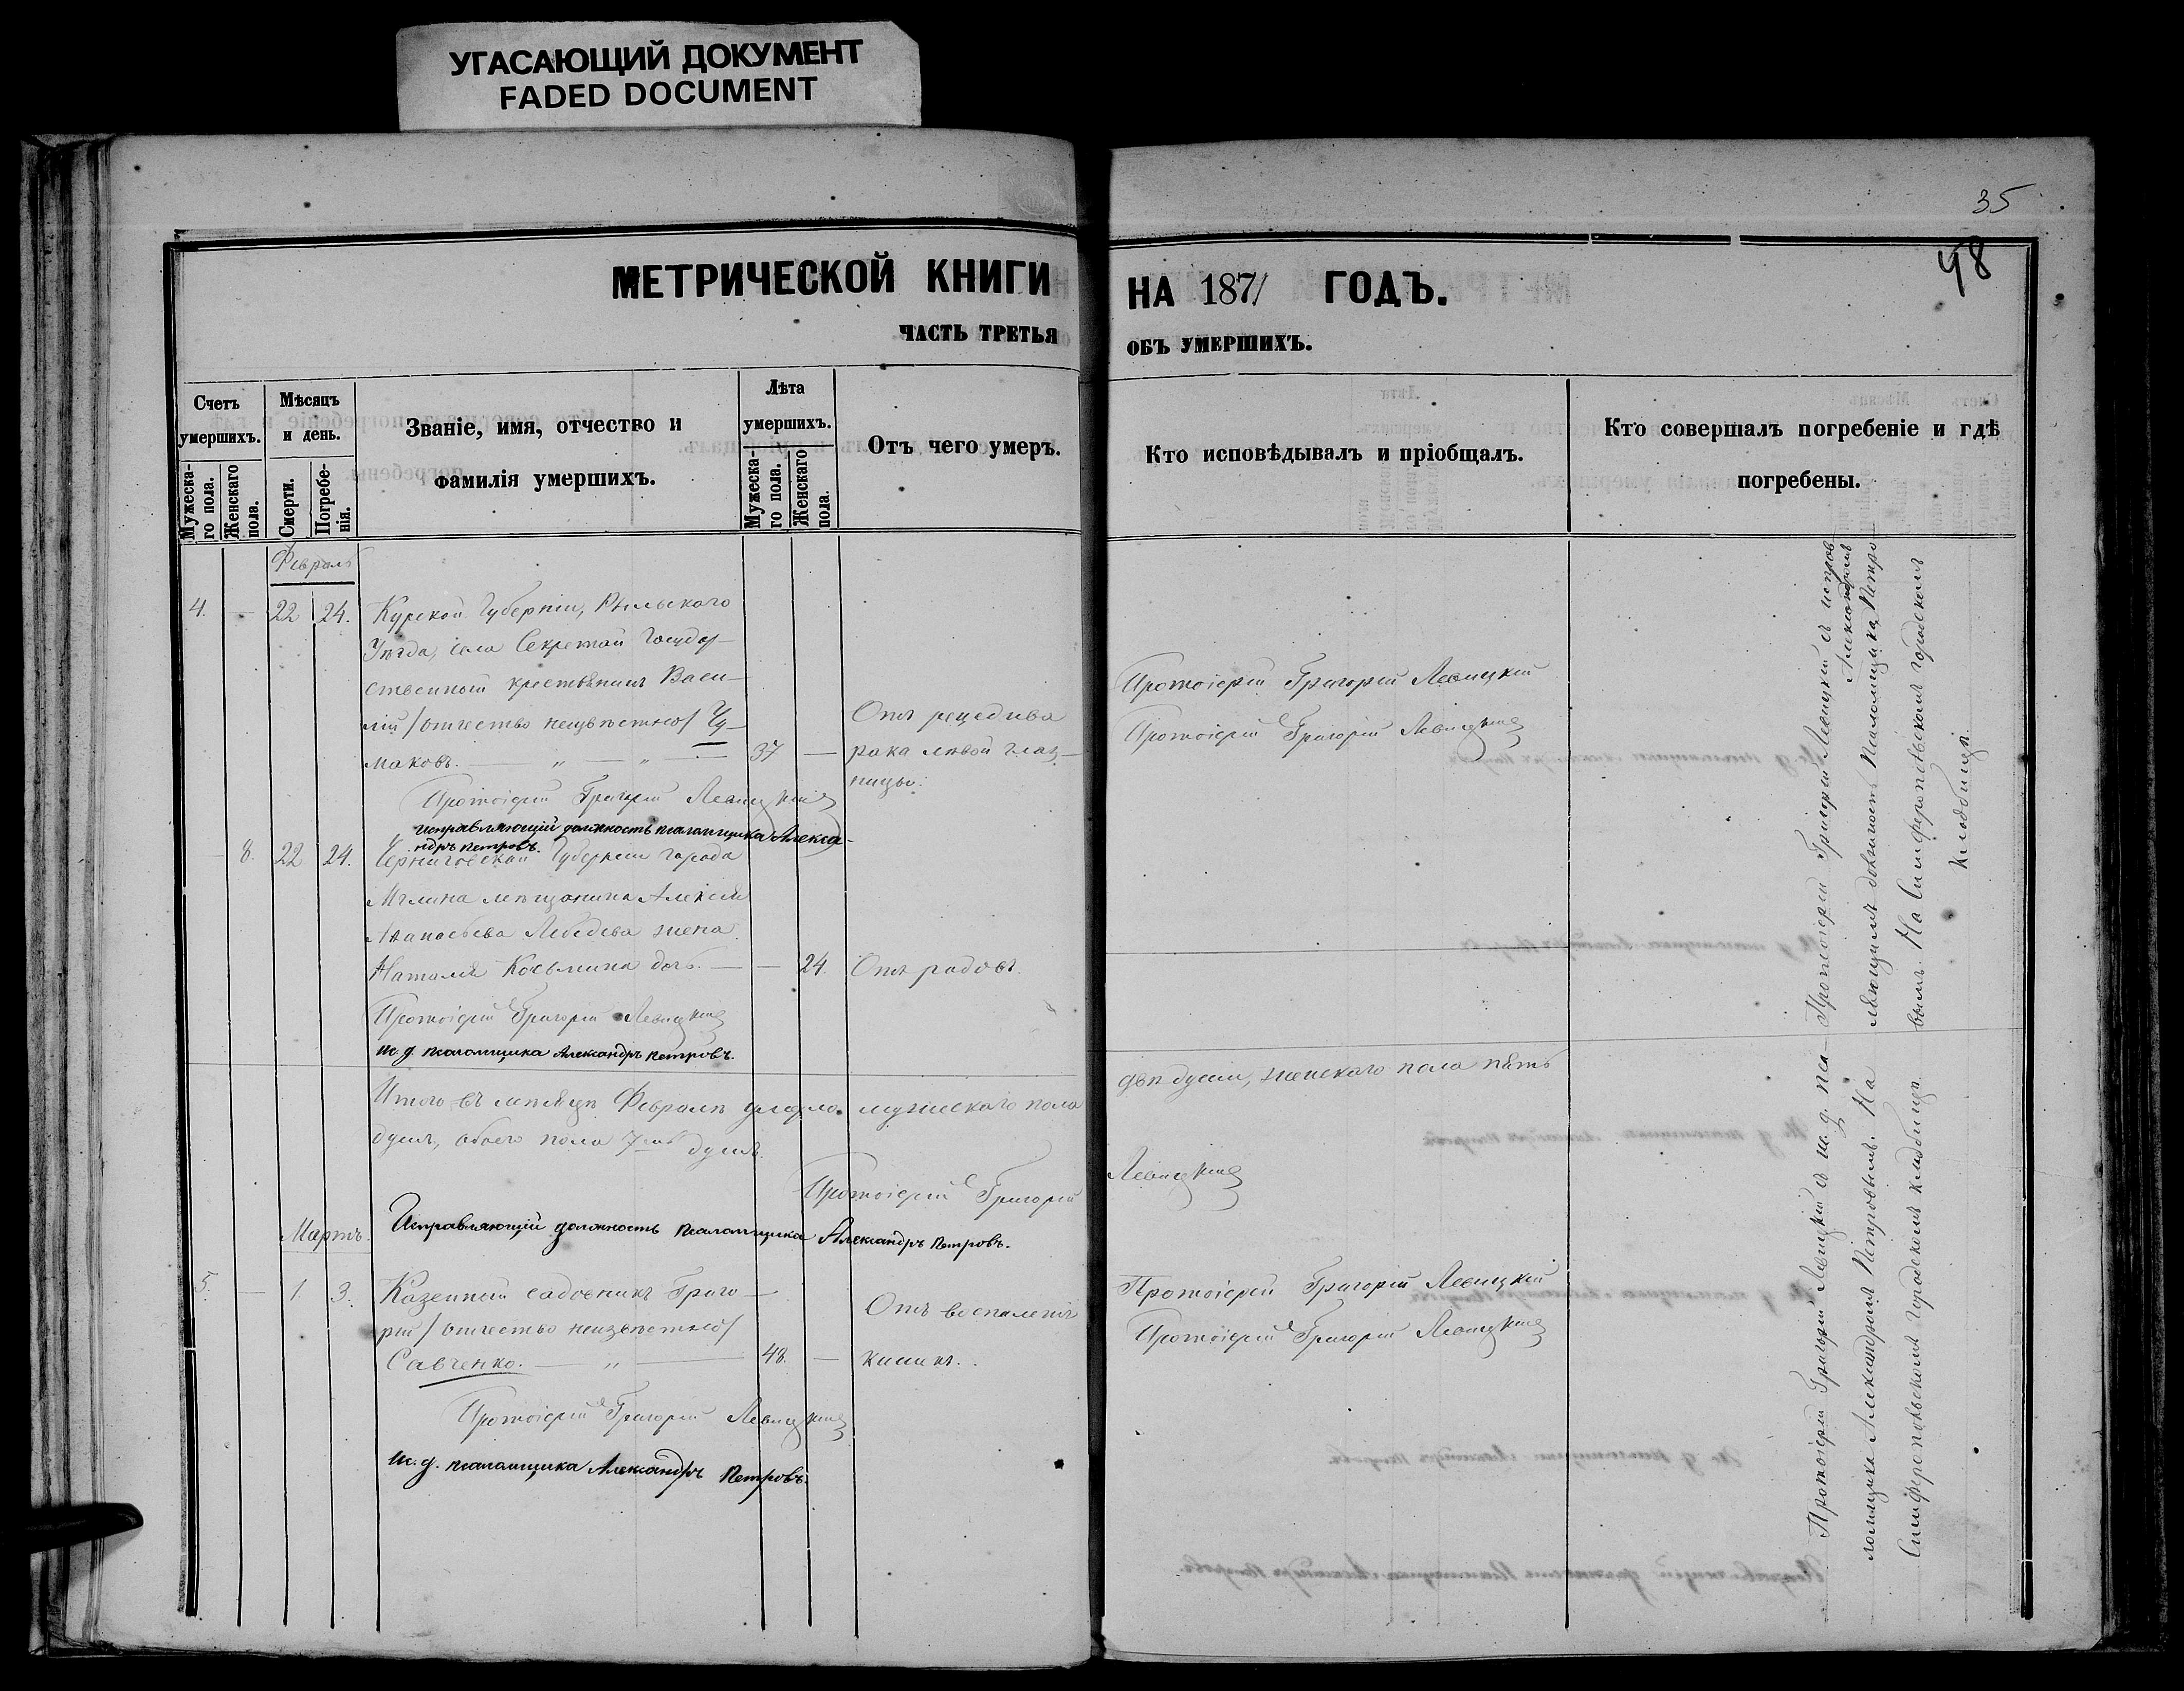 УГАСАЮЩИЙ ДОКУМЕНТ
FADED DOCUMENT
35
48
МЕТРИЧЕСКОЙ КНИГИ НА 1871 ГОДЪ.
ЧАСТЬ ТРЕТЬЯ ОБЪ УМЕРШИХЪ.
Счетъ умершихъ.
Мужеска-
го пола.
Женскаго
пола.
Мѣсяцъ
и день.
Смерти.
Погребе-
нія.
Званіе, имя, отчество и
фамилія умершихъ.
Лѣта
умершихъ.
Мужеска-
го пола.
Женскаго
пола.
Отъ чего умеръ.
Кто исповѣдывалъ и пріобщалъ.
Кто совершалъ погребеніе и гдѣ
погребены.
Февраль
4. — 22 24. Курской Губерніи, Рыльскаго
Уѣзда, села Секретай Государ-
ственный крестьянинъ Васи-
лій /отчество неизвѣстно/ Чу-
маковъ. — „ — „ — 37 —
Отъ рецедива
рака лѣвой глаз-
ницы.
Протоіерей Григорій Левицкій
Протоіерей Григорій Левицкій
Протоіерей Григорій Левицкій
исправляющій должность псаломщика Алекса-
ндръ Петровъ.
— 8. 22 24. Черниговской Губерніи города
Мглина мѣщанина Алексѣя
Аѳанасьева Лебедева жена
Наталія Косьмина дочь. — — 24. Отъ родовъ.
Протоіерей Григорій Левицкій
и. д. псаломщика Александръ Петровъ.
Итого въ мѣсяцѣ Февралѣ умерло мужескаго пола двѣ души, женскаго пола пять
душъ, обоего пола 7мь душъ.
Протоіерей Григорій Левицкій
Исправляющій должность псаломщика Александръ Петровъ.
Мартъ.
5. — 1 3. Казенный садовникъ Григо-
рій /отчество неизвѣстно/
Савченко. — „ — 48. —
Отъ воспаленія
кишекъ.
Протоіерей Григорій Левицкій
Протоіерей Григорій Левицкій
Протоіерей Григорій Левицкій
и. д. псаломщика Александръ Петровъ.
Протоіерей Григорій Левицкій съ исправ
ляющимъ должность псаломщика Александромъ Петро-
вымъ. На Симферопольскомъ городскомъ
кладбищѣ.
Протоіерей Григорій Левицкій съ и. д. пса-
ломщика Александромъ Петровымъ. На
Симферопольскомъ городскомъ кладбищѣ.